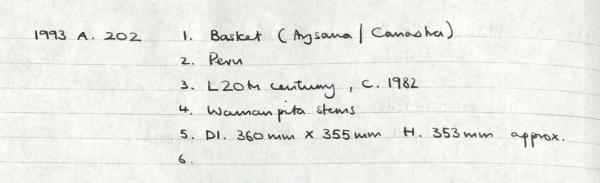 1993 A. 202 1. Basket (Aysana / Canasha)
2. Peru
3. L20th century, c. 1982
4. Wamanpita stems
5. DI. 360mm x 355mm H. 353mm approx.
6.